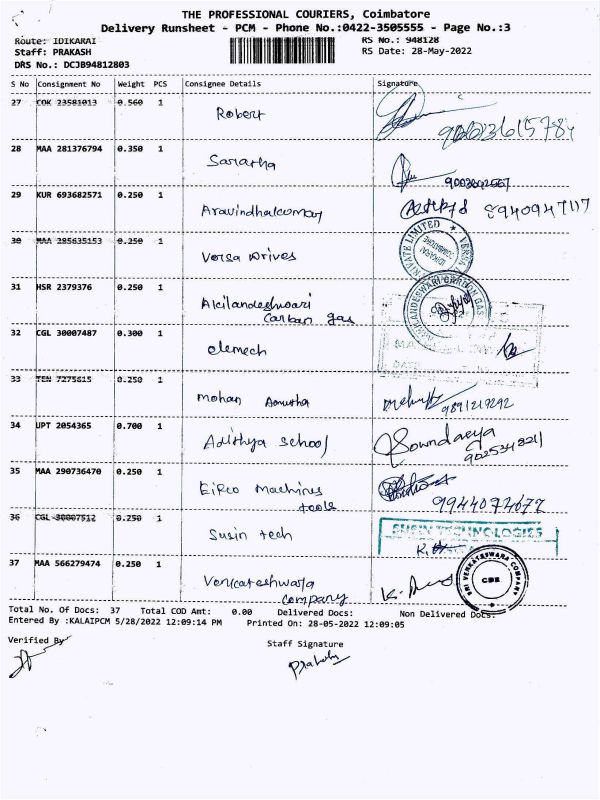 THE PROFESSIONAL COURIERS, Coimbatore
Delivery Runsheet - PCM - Phone No.:0422-3505555 - Page No.:3
Route: IDIKARAI RS No.: 948128
Staff: PRAKASH RS Date: 28-May-2022
DRS No.: DCJB94812803
S No Consignment No Weight PCS Consignee Details Signature
27 COK 23581013 0.560 1
Robert
28 MAA 281376794 0.350 1
Saratha
9003602567
29 KUR 693682571 0.250 1
Aravindhakumar
30 MAA 285635153 0.250 1
Versa Drives
31 HSR 2379376 0.250 1
Akilandeshwari
Carbon gas
32 CGL 30007487 0.300 1
elemech
33 TEN 7275615 0.250 1
mohan
9891219292
34 UPT 2054365 0.700 1
Adithya School
Sowndarya
35 MAA 290736470 0.250 1
Eirco Machines
tools
9944072677
36 CGL 30007512 0.250 1
Susin tech
SUSIN TECHNOLOGIES
37 MAA 566279474 0.250 1
Venkateshwara
company
SRI VENKATESWARA COMPANY
CBE
Total No. Of Docs: 37 Total COD Amt: 0.00 Delivered Docs: Non Delivered Docs:
Entered By :KALAIPCM 5/28/2022 12:09:14 PM Printed On: 28-05-2022 12:09:05
Verified By Staff Signature
Prakash